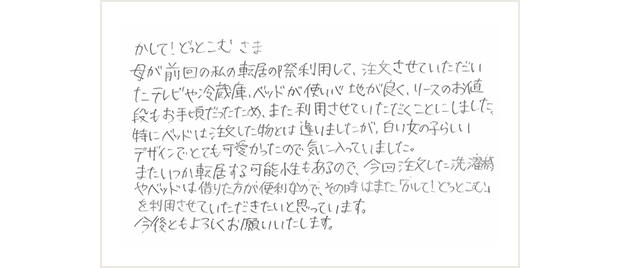 かして！どっとこむ さま
母が前回の私の転居の際利用して、注文させていただい
たテレビや冷蔵庫、ベッドが使い心地が良く、リースのお値
段もお手頃だったため、また利用させていただくことにしました。
特にベッドは注文した物とは違いましたが、白い女の子らしい
デザインでとても可愛かったので気に入っていました。
またいつか転居する可能性もあるので、今回注文した洗濯機
やベッドは借りた方が便利なので、その時はまた「かして！どっとこむ」
を利用させていただきたいと思っています。
今後ともよろしくお願いいたします。